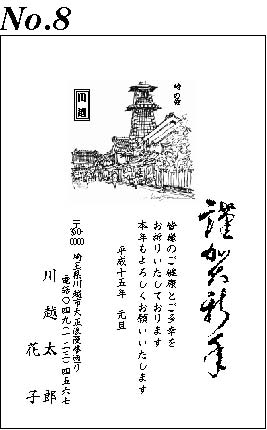 No.8
時の鐘
川越
謹賀新年
皆様のご健康とご多幸を
お祈りいたしております
本年もよろしくお願いいたします
平成十五年 元旦
〒350-0000
埼玉県川越市大正浪漫夢通り
電話〇四九(一二三)四五六七
川越太郎
花子